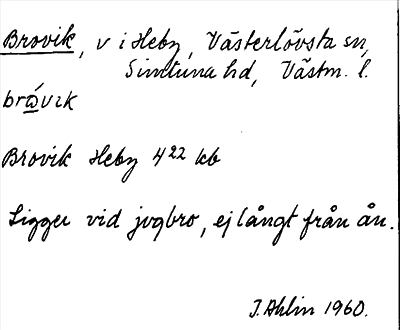 Brovik, v i Heby, Västerlövsta sn,
Simtuna hd, Västm. l.
brώvιk
Brovik Heby 4²² kb
Ligger vid jvgbro, ej långt från ån.
J. Ahlin 1960.